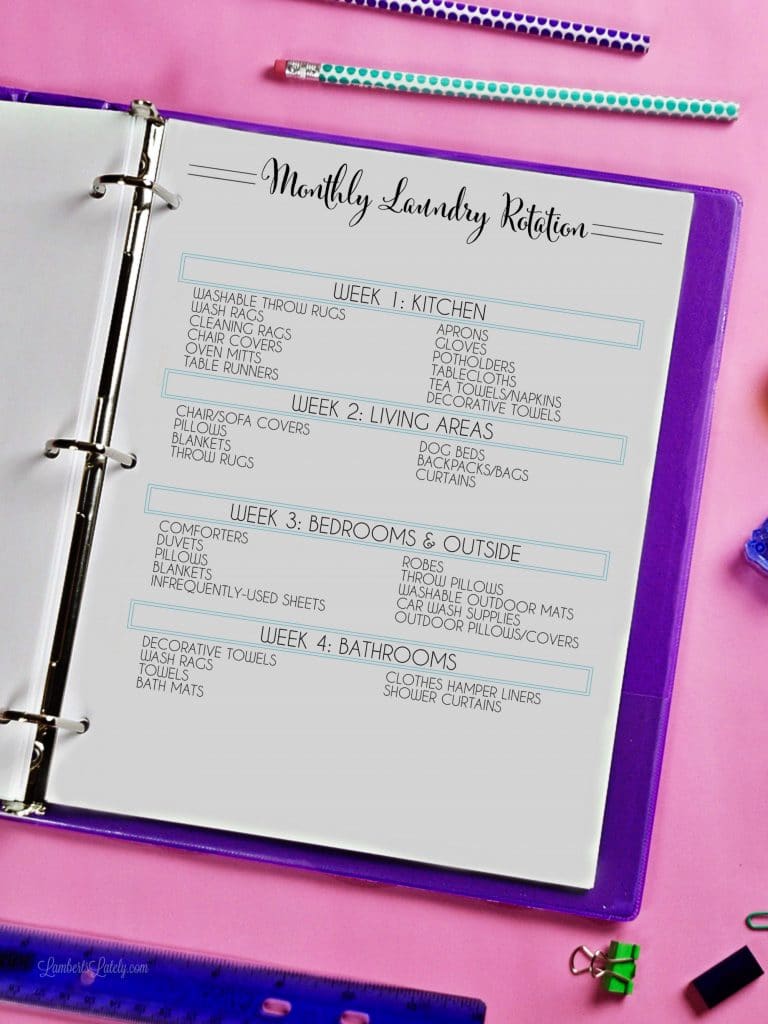 Monthly Laundry Rotation
WEEK 1: KITCHEN
WASHABLE THROW RUGS
WASH RAGS
CLEANING RAGS
CHAIR COVERS
OVEN MITTS
TABLE RUNNERS
APRONS
GLOVES
POTHOLDERS
TABLECLOTHS
TEA TOWELS/NAPKINS
DECORATIVE TOWELS
WEEK 2: LIVING AREAS
CHAIR/SOFA COVERS
PILLOWS
BLANKETS
THROW RUGS
DOG BEDS
BACKPACKS/BAGS
CURTAINS
WEEK 3: BEDROOMS & OUTSIDE
COMFORTERS
DUVETS
PILLOWS
BLANKETS
INFREQUENTLY-USED SHEETS
ROBES
THROW PILLOWS
WASHABLE OUTDOOR MATS
CAR WASH SUPPLIES
OUTDOOR PILLOWS/COVERS
WEEK 4: BATHROOMS
DECORATIVE TOWELS
WASH RAGS
TOWELS
BATH MATS
CLOTHES HAMPER LINERS
SHOWER CURTAINS
LambertsLately.com